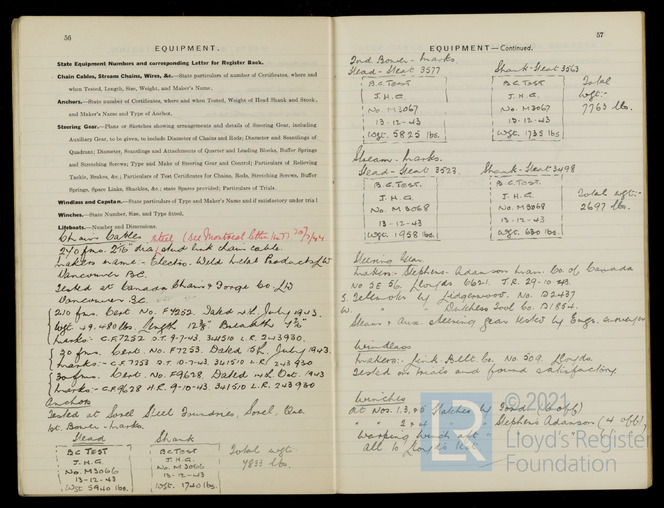 56
EQUIPMENT.
State Equipment Numbers and corresponding Letter for Register Book.
Chain Cables, Stream Chains, Wires, &c.—State particulars of number of Certificates, where and
when Tested, Length, Size, Weight, and Maker's Name.
Anchors.—State number of Certificates, where and when Tested, Weight of Head Shank and Stock,
and Maker's Name and Type of Anchor.
Steering Gear.—Plans or Sketches showing arrangements and details of Steering Gear, including
Auxiliary Gear, to be given, to include Diameter of Chains and Rods; Diameter and Scantlings of
Quadrant; Diameter, Scantlings and Attachments of Quarter and Leading Blocks, Buffer Springs
and Stretching Screws; Type and Make of Steering Gear and Control; Particulars of Relieving
Tackle, Brakes, &c.; Particulars of Test Certificates for Chains, Rods, Stretching Screws, Buffer
Springs, Spare Links, Shackles, &c.; state Spares provided; Particulars of Trials.
Windlass and Capstan.—State particulars of Type and Maker's Name and if satisfactory under trial
Winches.—State Number, Size, and Type fitted.
Lifeboats.—Number and Dimensions.
Chain Cables steel (see Montreal letter
270 fms. dia. stud link chain cable.
Makers name:- Electric Weld Metal Products Ltd
Vancouver B.C.
Tested at Canada Chain & Forge Co Ltd
Vancouver B.C.
210 fms. Cert No. F7252. Dated 4th July 1943.
Wgt 49.480 lbs. Length Breadth
Marks:- C.F.7252 O.T. 9-7-43. 341510 L.R. 243930.
30 fms. Cert. No. F7253. Dated 5th July 1943.
Marks:- C.F.7253 O.T. 10-7-43. 341510 L.R. 243930
30 fms. Cert. No. F9628. Dated 14th Oct. 1943
Marks:- C.F.9628 H.R. 9-10-43 341510 L.R. 243930
Anchors
Tested at Sorel Steel Foundries, Sorel, Que
1st. Bower - Marks.
Head Shank
B.C TEST B.C TEST Total wgt-
J.H.G. J.H.G. 7833 lbs.
No. M3066 No. M3066
13-12-43 13-12-43
Wgt 5940 lbs. Wgt. 1740 lbs.
57
EQUIPMENT—Continued.
2nd. Bower - Marks.
Head - Heat 3577 Shank - Heat 3563
B.C TEST B.C. TEST Total
J.H.G. J.H.G. wgt-
No. M3067 No. M3067 7763 lbs.
13-12-43 13-12-43
Wgt. 5825 lbs. Wgt. 1735 lbs.
Stream. Marks.
Head - Heat 3523 Shank - Heat 3498
B.C. TEST. B.C. TEST Total wgt:-
J.H.G. J.H.G. 2697 lbs.
No. M3068 No. M3068
13-12-43 13-12-43
Wgt. 1958 lbs. Wgt. 630 lbs.
Steering Gear
Makers:- Stephens Adamson Man. Co of Canada
No 2E 56. Lloyds 6621. J.R. 29-10-43.
S. Telemotor by Lidgerwood. No. B2437
W. " " Dutchess Tool Co. B1854.
Steam & Aux. steering gear tested by Engr. surveyor
Windlass
Makers:- Link Belt Co. No. 509. Lloyds
Tested on trials and found satisfactory
Winches
At Nos. 1, 3, & 5 Hatches by (6 off)
" " 2 & 4 " " Stephens Adamson (4 off)
Warping winch aft - " "
all to Lloyds
© 2021
LR
Lloyd's Register
Foundation